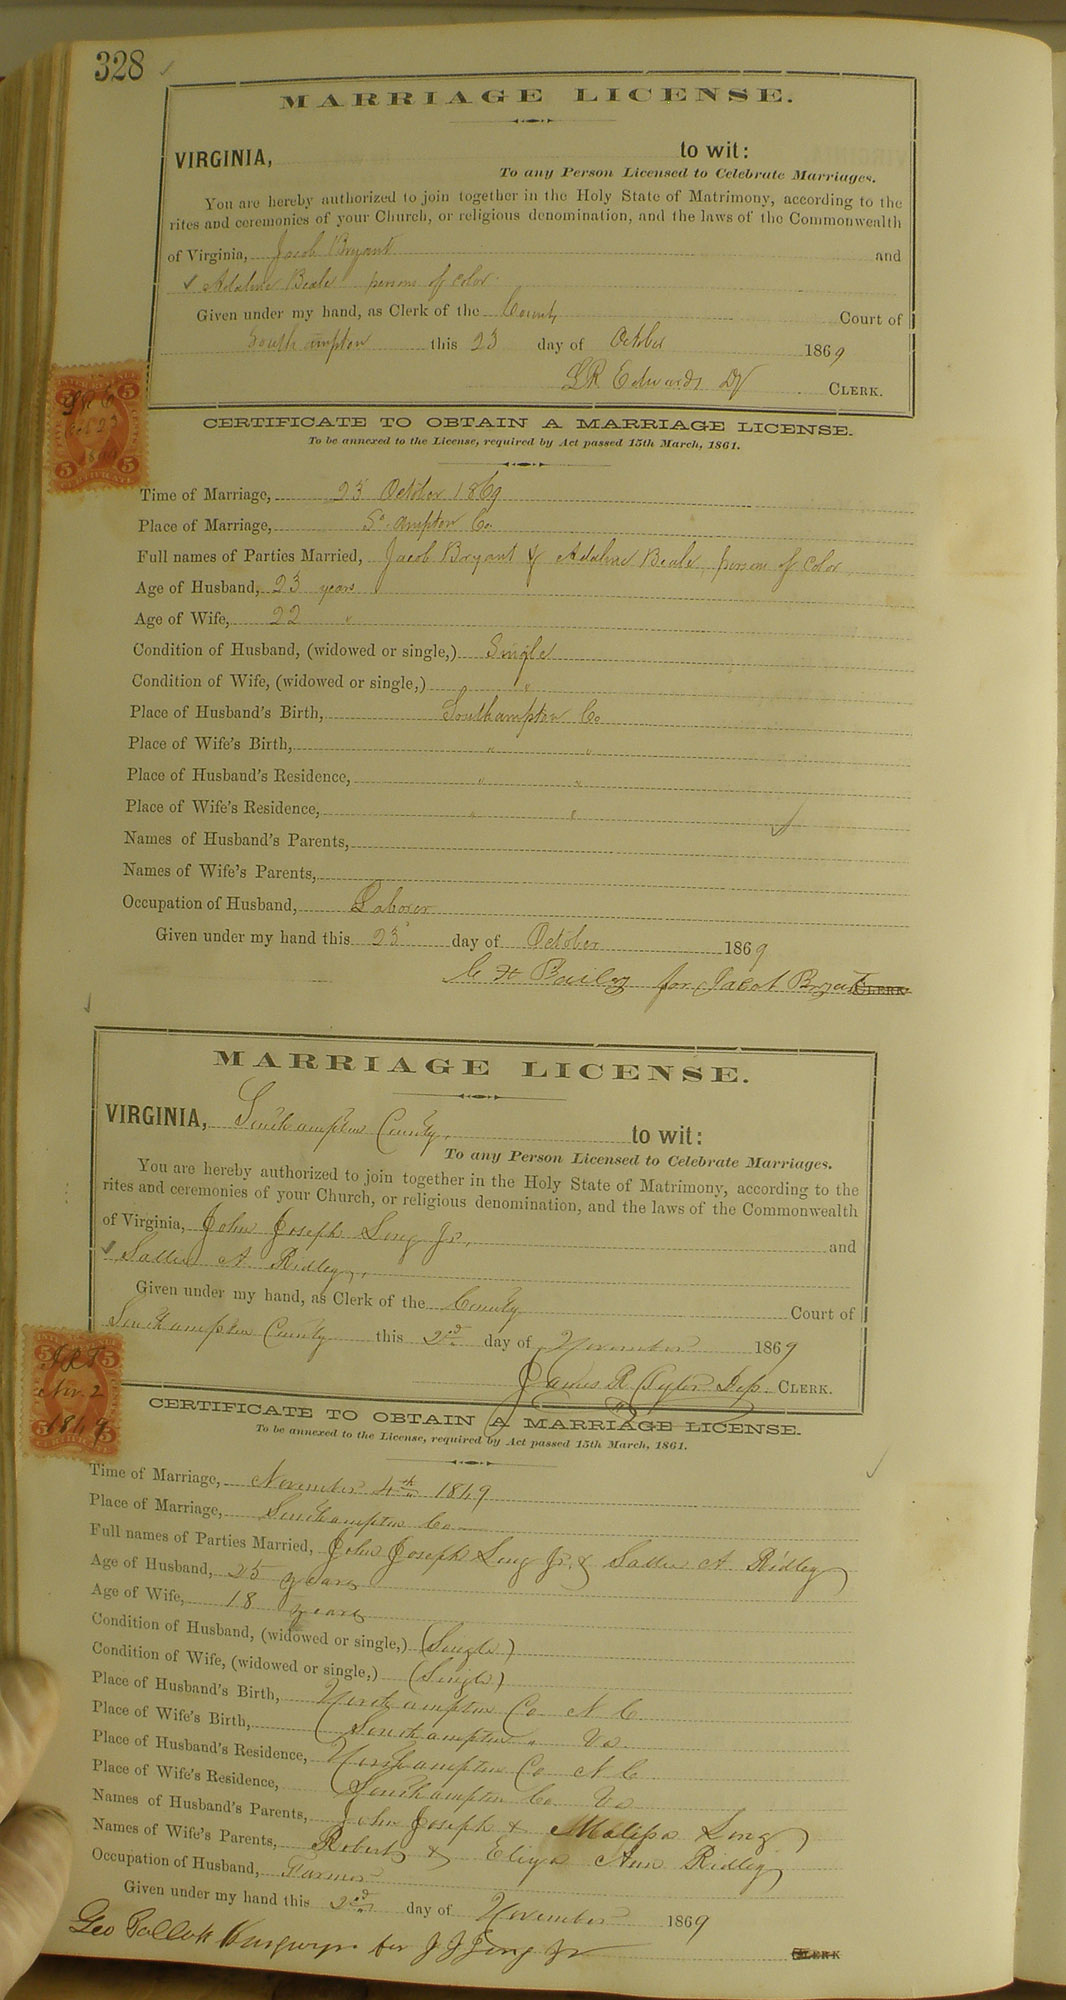 328
MARRIAGE LICENSE.
VIRGINIA, to wit:
To any Person Licensed to Celebrate Marriages.
You are hereby authorized to join together in the Holy State of Matrimony, according to the
rites and ceremonies of your Church, or religious denomination, and the laws of the Commonwealth
of Virginia, Jacob Bryant and
Adaline Beale persons of color
Given under my hand, as Clerk of the County Court of
Southampton this 23 day of October 1869
L R Edwards CLERK.
CERTIFICATE TO OBTAIN A MARRIAGE LICENSE.
To be annexed to the License, required by Act passed 15th March, 1861.
Time of Marriage, 23 October 1869
Place of Marriage, So ampton Co.
Full names of Parties Married, Jacob Bryant & Adaline Beale, persons of color
Age of Husband, 23 years
Age of Wife, 22 "
Condition of Husband, (widowed or single,) Single
Condition of Wife, (widowed or single,) "
Place of Husband's Birth, Southampton Co
Place of Wife's Birth, " "
Place of Husband's Residence, " "
Place of Wife's Residence, " "
Names of Husband's Parents,
Names of Wife's Parents,
Occupation of Husband, Laborer
Given under my hand this 23 day of October 1869
Bailey for Jacob Bryant CLERK.
MARRIAGE LICENSE.
VIRGINIA, Southampton County, to wit:
To any Person Licensed to Celebrate Marriages.
You are hereby authorized to join together in the Holy State of Matrimony, according to the
rites and ceremonies of your Church, or religious denomination, and the laws of the Commonwealth
of Virginia, John Joseph Long Jr. and
Sallie A. Ridley,
Given under my hand, as Clerk of the County Court of
Southampton County this 2nd day of November 1869
James R Tyler Dep. CLERK.
5 J.R.T. 5
Nov. 2
1869
CERTIFICATE TO OBTAIN A MARRIAGE LICENSE.
To be annexed to the License, required by Act passed 15th March, 1861.
Time of Marriage, November 4th 1869
Place of Marriage, Southampton Co
Full names of Parties Married, John Joseph Long Jr. & Sallie A Ridley
Age of Husband, 25 years
Age of Wife, 18 years
Condition of Husband, (widowed or single,) (Single)
Condition of Wife, (widowed or single,) (Single)
Place of Husband's Birth, Northampton Co N C
Place of Wife's Birth, Southampton " Va.
Place of Husband's Residence, Northampton Co N C
Place of Wife's Residence, Southampton Co Va
Names of Husband's Parents, John Joseph & Melissa Long
Names of Wife's Parents, Robert & Eliza Ann Ridley
Occupation of Husband, Farmer
Given under my hand this 2nd day of November 1869
Geo Pollok Burgwyn for J J Long Jr CLERK